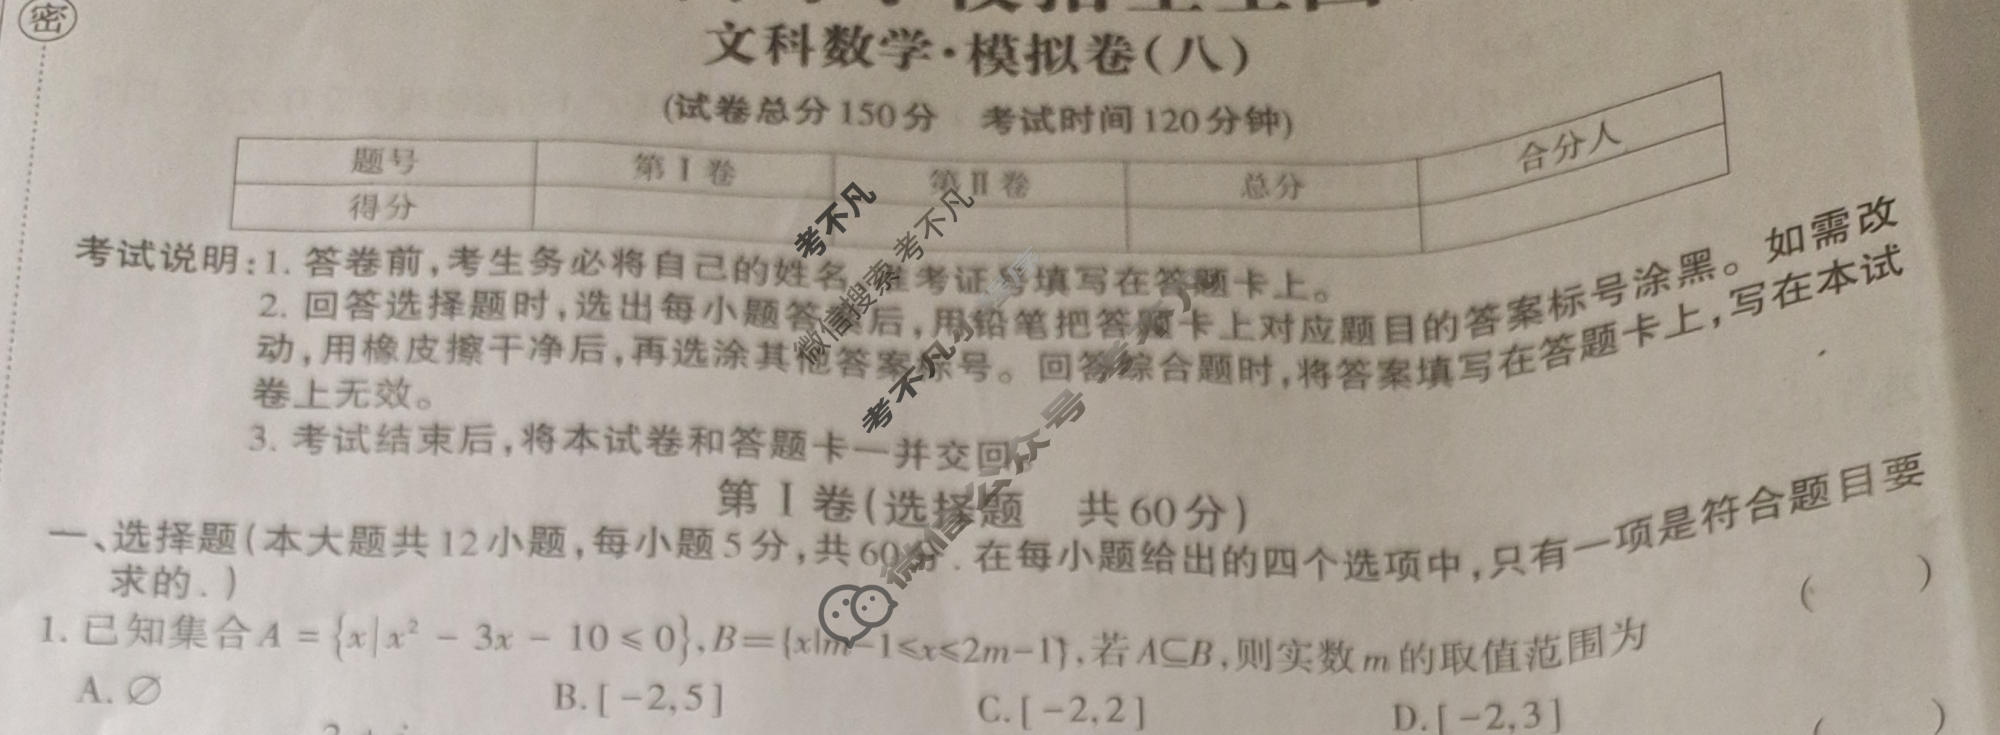 密
文科数学·模拟卷(八)
(试卷总分150分 考试时间120分钟)
题号 第Ⅰ卷 第Ⅱ卷 总分 合分人
得分
考试说明:1. 答卷前,考生务必将自己的姓名 准考证号填写在答题卡上。
2. 回答选择题时,选出每小题答案后,用铅笔把答题卡上对应题目的答案标号涂黑。如需改
动,用橡皮擦干净后,再选涂其他答案标号。回答综合题时,将答案填写在答题卡上,写在本试
卷上无效。
3. 考试结束后,将本试卷和答题卡一并交回
第Ⅰ卷(选择题 共60分)
一、选择题(本大题共12小题,每小题5分,共60分.在每小题给出的四个选项中,只有一项是符合题目要
求的.)
1. 已知集合A={x|x²-3x-10≤0},B={x|m-1≤x≤2m-1},若A⊆B,则实数m的取值范围为 ( )
A.∅ B.[-2,5] C.[-2,2] D.[-2,3]
( )
考不凡
微信搜索 考不凡
考不凡
微信公众号